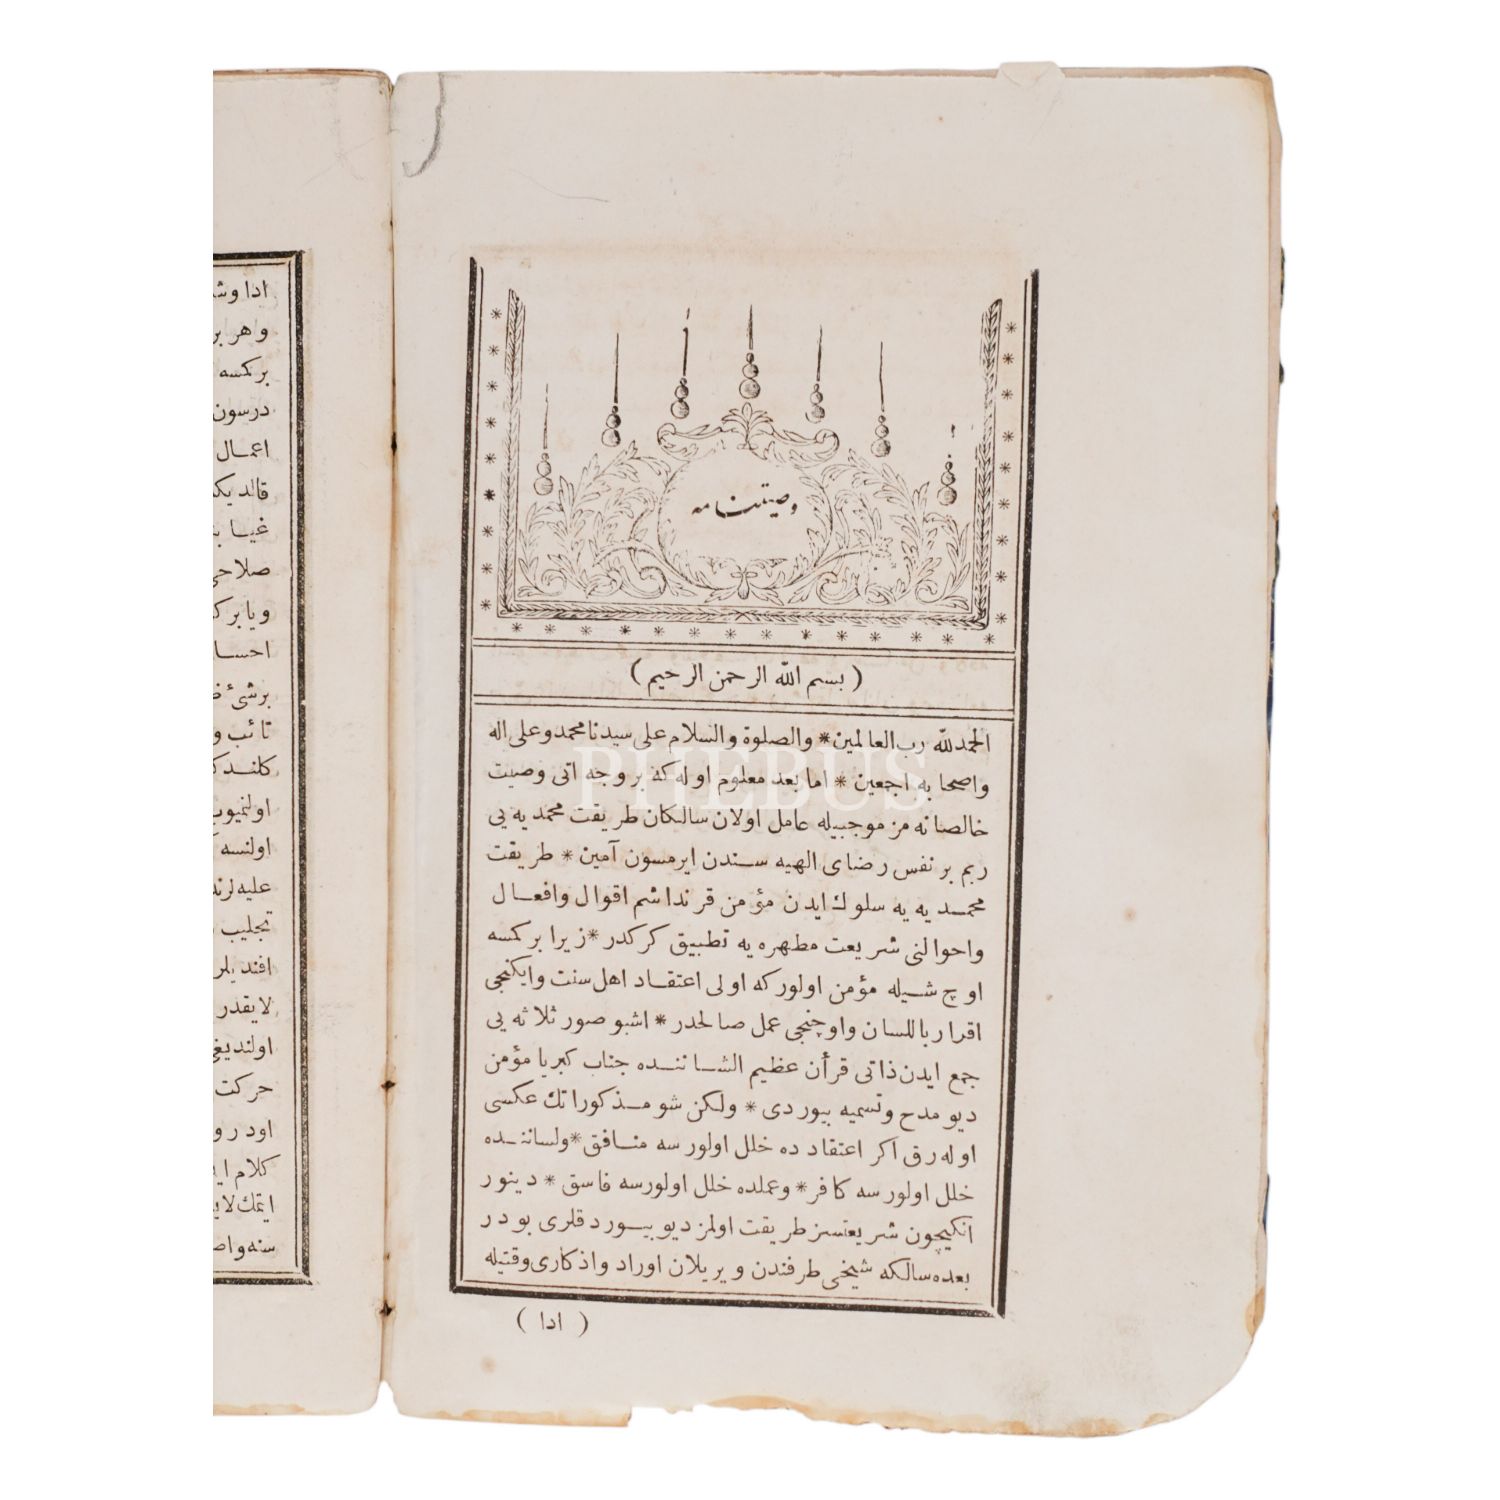 وصیتنامه
(بسم الله الرحمن الرحیم)
الحمدلله رب العالمین * والصلوة والسلام علی سیدنا محمد وعلی اله
واصحابه اجمعین * اما بعد معلوم اوله که بر وجه اتی وصیت
خالصانه مز موجبیله عامل اولان سالکان طریقت محمدیه یی
ربم بر نفس رضای الهیه سندن ایرمسون آمین * طریقت
محمدیه یه سلوك ایدن مؤمن قرنداشم اقوال وافعال
واحوالنی شریعت مطهره یه تطبیق کرکدر * زیرا برکسه
اوچ شیله مؤمن اولور که اولی اعتقاد اهل سنت وایکنجی
اقرار باللسان واوچنجی عمل صالحدر * اشبو صور ثلاثه یی
جمع ایدن ذاتی قرأن عظیم الشاننده جناب کبریا مؤمن
دیو مدح وتسمیه بیوردی * ولکن شو مذکوراتك عکسی
اوله رق اکر اعتقادده خلل اولورسه منافق * ولساننده
خلل اولورسه کافر * وعملده خلل اولورسه فاسق * دینور
انکیچون شریعتسز طریقت اولمز دیو بیوردقلری بودر
بعده سالکه شیخی طرفندن ویریلان اوراد واذکاری وقتیله
( ادا )
ادا وش
واهر بر
برکسه
درسون
اعمال
قالدیکه
صلاحی
ویا برک
احسا
برشیء
تائب و
کلندک
اولنمیوب
اولنسه
علیه لرند
تجلیب
افندیلر
لایقدر
اولندیغی
حرکت
اودر و
کلام ای
ایتمك لای
سنه واص
PHEBUS